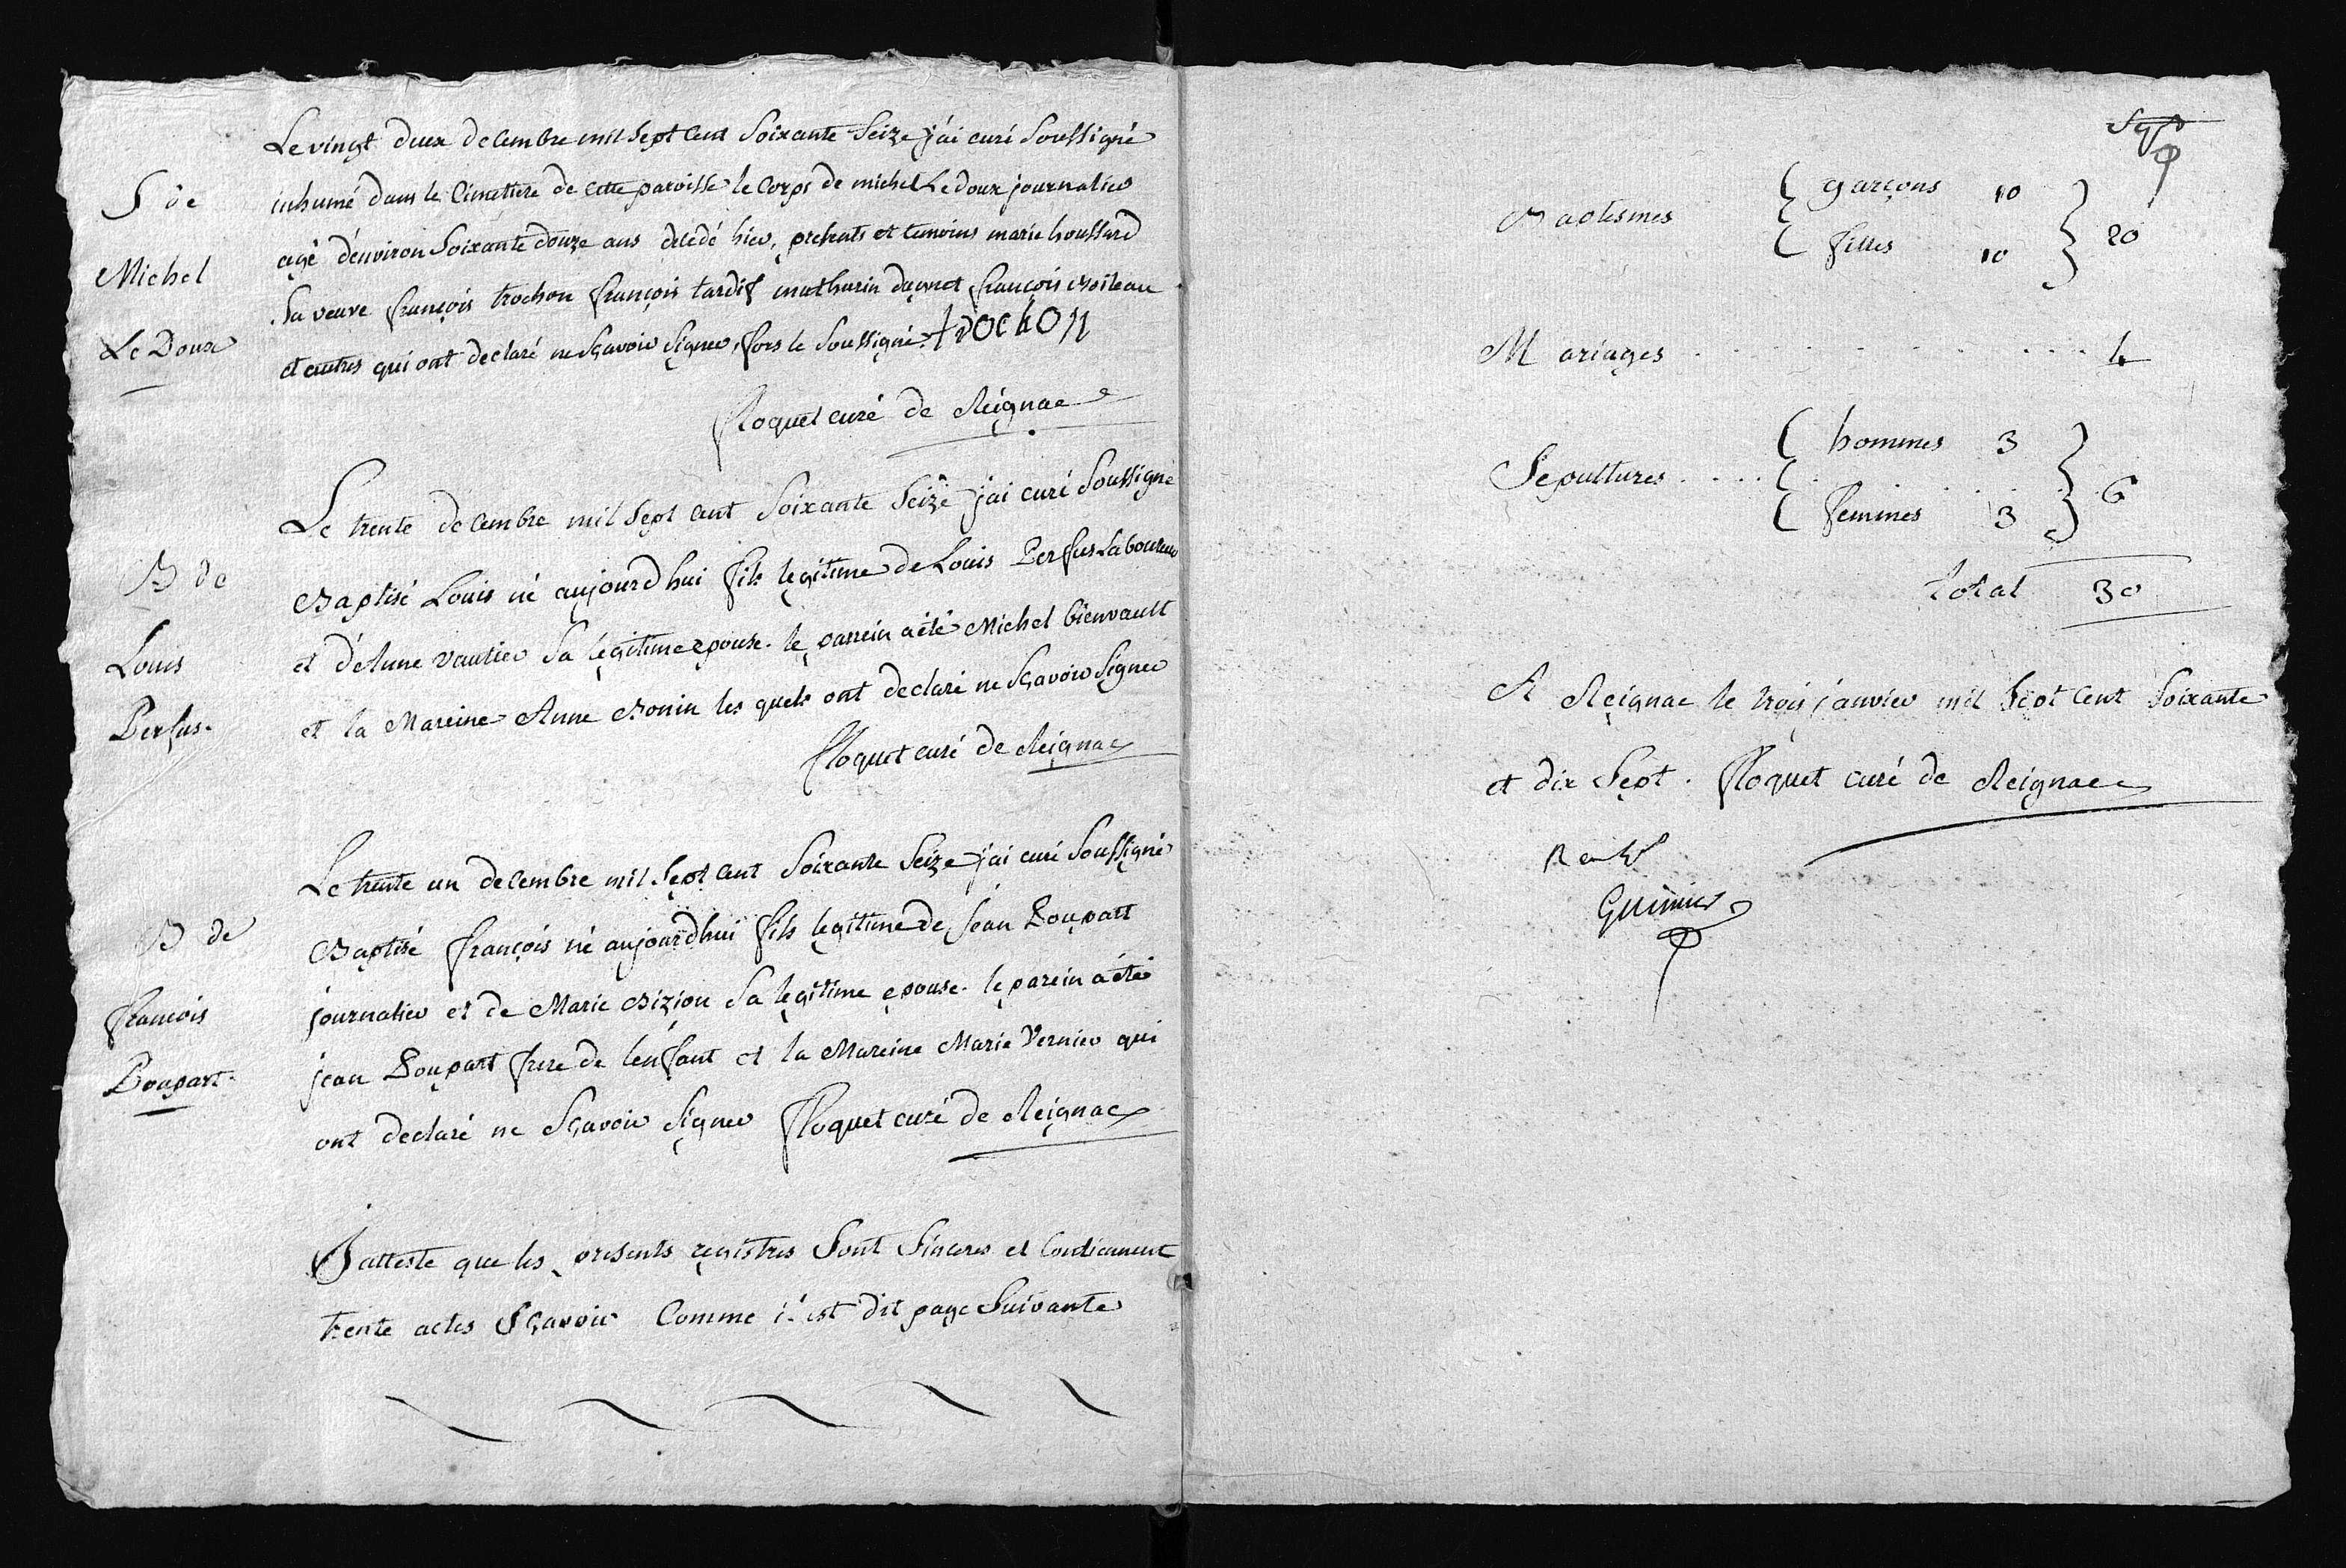 Le vingt deux decembre mil sept cent soixante seize j'ai curé soussigné
S de
inhumé dans le Cimettiere de cette paroisse le Corps de michel Le doux journalier
agé d'environ soixante douze ans decedé hier, presents et temoins marie houssard
Michel
sa veuve françois trochon françois tardif mathurin daguet françois Boileau
Le Doux
et autres qui ont declaré ne sçavoir signer, fors le soussigné. trochon
Floquet curé de Reignac
Le trente decembre mil sept cent soixante seize j'ai curé soussigné
B de
Baptisé Louis né aujourdhui fils legitime de Louis Perfus Laboureur
Louis
et d'Anne vautier sa légitime epouse. le parrein a été Michel bienvault
Perfus.
et la Mareine Anne Bonin les quels ont declaré ne sçavoir signer
Floquet curé de Reignac
Le trente un decembre mil sept cent soixante seize j'ai curé soussigné
B de
Baptisé françois né aujourdhui fils legitime de jean Poupart
françois
journalier et de Marie Bizion sa legitime epouse. le parein a été
Poupart.
jean Poupart frere de l'enfant et la Mareine Marie Vernier qui
ont declaré ne sçavoir signer Floquet curé de Reignac
J'atteste que les presents registres sont sinceres et Contiennent
trente actes sçavoir Comme c'est dit page suivante
Baptesmes { garçons 10
filles 10 } 20
Mariages . . . . . . . . . . 4
Sepultures . . . . { hommes 3
femmes 3 } 6
total 30
A Reignac le trois janvier mil sept cent soixante
et dix sept. Floquet curé de Reignac
Guimier